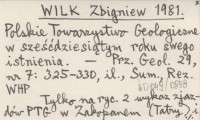 WILK Zbigniew 1981.
Polskie Towarzystwo Geologiczne
w sześćdziesiątym roku swego
istnienia. – Prz. Geol. 29,
nr 7: 325-330, il., Sum., Rez.
WHP
Tylko na ryc. 2 wykaz zjaz-
dów PTG w Zakopanem (Tatry, i